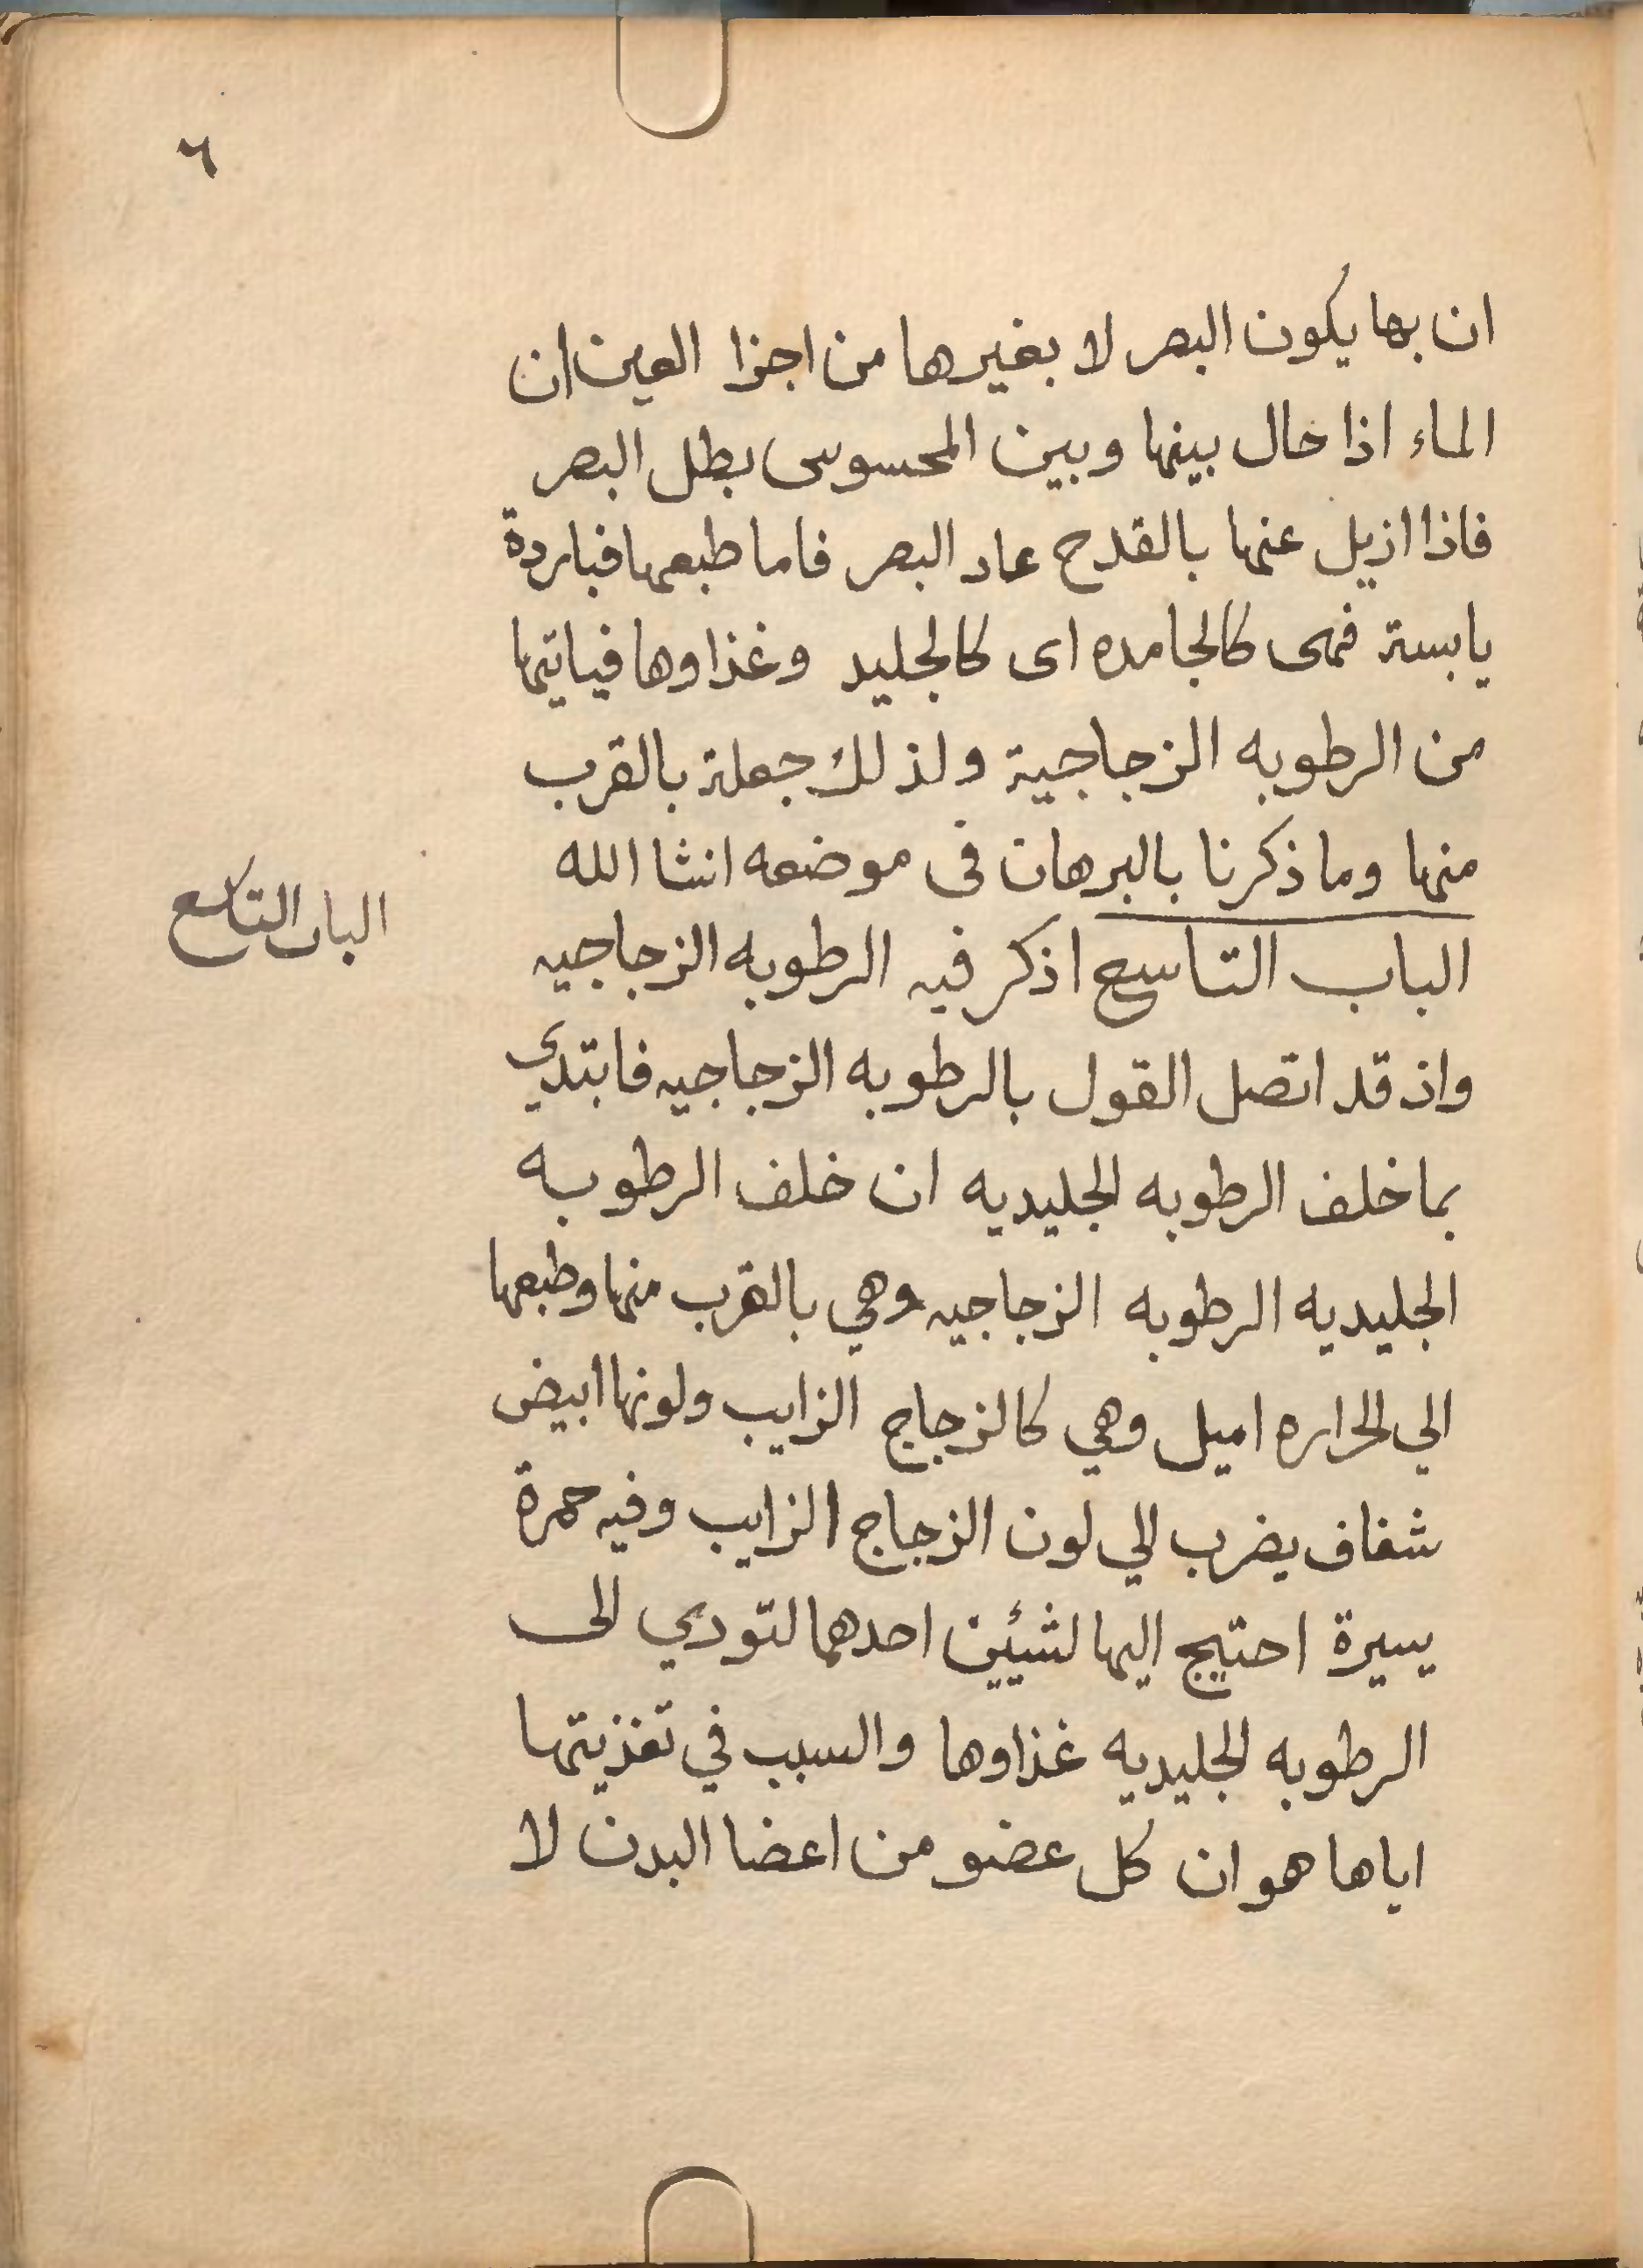 ٦
ان بها يكون البصر لا بغيرها من اجزا العين ان
الماء اذا حال بينها وبين المحسوس بطل البصر
فاذا ازيل عنها بالقدح عاد البصر فاما طبعها فباردة
يابسة فهى كالجامده اى كالجليد وغذاوها فياتيها
من الرطوبه الزجاجية ولذلك جعلة بالقرب
منها وما ذكرنا بالبرهان فى موضعه انشا الله
الباب التاسع
الباب التاسع اذكر فيه الرطوبه الزجاجيه
واذ قد اتصل القول بالرطوبه الزجاجيه فابتدي
بما خلف الرطوبه الجليديه ان خلف الرطوبه
الجليديه الرطوبه الزجاجيه وهي بالقرب منها وطبعها
الي الحراره اميل وهي كالزجاج الزايب ولونها ابيض
شفاف يضرب الي لون الزجاج الزايب وفيه حمرة
يسيرة احتيج اليها لشيئين احدهما لتودي الى
الرطوبه الجليديه غذاوها والسبب في تغذيتها
اياها هو ان كل عضو من اعضا البدن لا